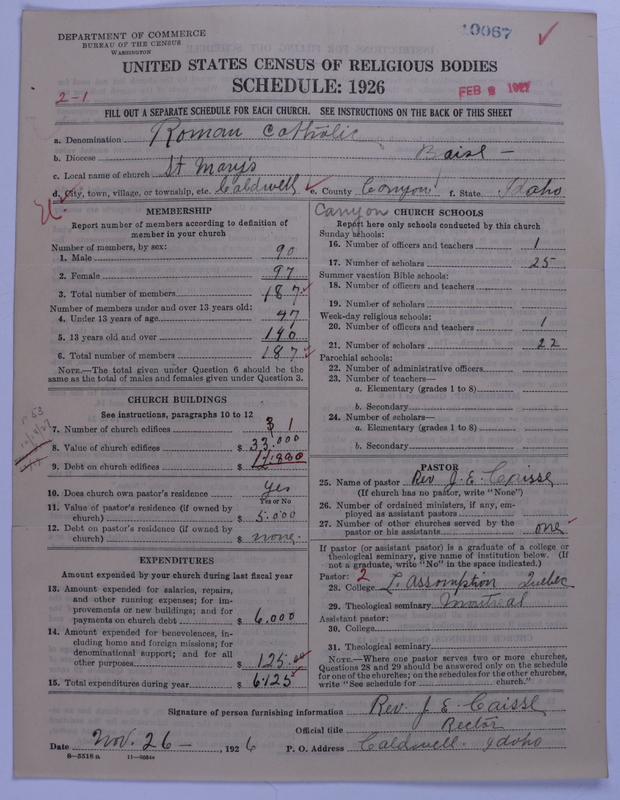 DEPARTMENT OF COMMERCE
BUREAU OF THE CENSUS
WASHINGTON
19067
UNITED STATES CENSUS OF RELIGIOUS BODIES
SCHEDULE: 1926
2-1
FEB 8 1927
FILL OUT A SEPARATE SCHEDULE FOR EACH CHURCH. SEE INSTRUCTIONS ON THE BACK OF THIS SHEET
a. Denomination Roman Catholic
b. Diocese Boise —
c. Local name of church St Mary's
d. City, town, village, or township, etc. Caldwell e. County Conyon f. State Idaho
Canyon
MEMBERSHIP
Report number of members according to definition of
member in your church
Number of members, by sex:
1. Male 90
2. Female 97
3. Total number of members 187
Number of members under and over 13 years old:
4. Under 13 years of age 47
5. 13 years old and over 140
6. Total number of members 187
NOTE.—The total given under Question 6 should be
same as the total of males and females given under Question 3.
CHURCH BUILDINGS
See instructions, paragraphs 10 to 12
7. Number of church edifices 1
8. Value of church edifices $ 33.000
9. Debt on church edifices $
10. Does church own pastor's residence yes
Yes or No
11. Value of pastor's residence (if owned by
church) $ 5.000
12. Debt on pastor's residence (if owned by
church) $ none.
EXPENDITURES
Amount expended by your church during last fiscal year
13. Amount expended for salaries, repairs,
and other running expenses; for im-
provements or new buildings; and for
payments on church debt $ 6,000
14. Amount expended for benevolences, in-
cluding home and foreign missions; for
denominational support; and for all
other purposes $ 125.00
15. Total expenditures during year $ 6125
CHURCH SCHOOLS
Report here only schools conducted by this church
Sunday schools:
16. Number of officers and teachers 1
17. Number of scholars 25
Summer vacation Bible schools:
18. Number of officers and teachers
19. Number of scholars
Week-day religious schools:
20. Number of officers and teachers 1
21. Number of scholars 22
Parochial schools:
22. Number of administrative officers
23. Number of teachers—
a. Elementary (grades 1 to 8)
b. Secondary
24. Number of scholars—
a. Elementary (grades 1 to 8)
b. Secondary
PASTOR
25. Name of pastor Rev J. E. Caisse
(If church has no pastor, write "None")
26. Number of ordained ministers, if any, em-
ployed as assistant pastors
27. Number of other churches served by the
pastor or his assistants one
If pastor (or assistant pastor) is a graduate of a college or
theological seminary, give name of institution below. (If
not a graduate, write "No" in the space indicated.)
Pastor: 2
28. College L'assomption Quebec
29. Theological seminary Montreal
Assistant pastor:
30. College
31. Theological seminary
NOTE.—Where one pastor serves two or more churches,
Questions 28 and 29 should be answered only on the schedule
for one of the churches; on the schedules for the other churches,
write "See schedule for church."
Signature of person furnishing information Rev. J. E. Caisse
Official title Rector
Date Nov. 26 — , 1926 P. O. Address Caldwell. Idaho
8—5518 a 11—9504